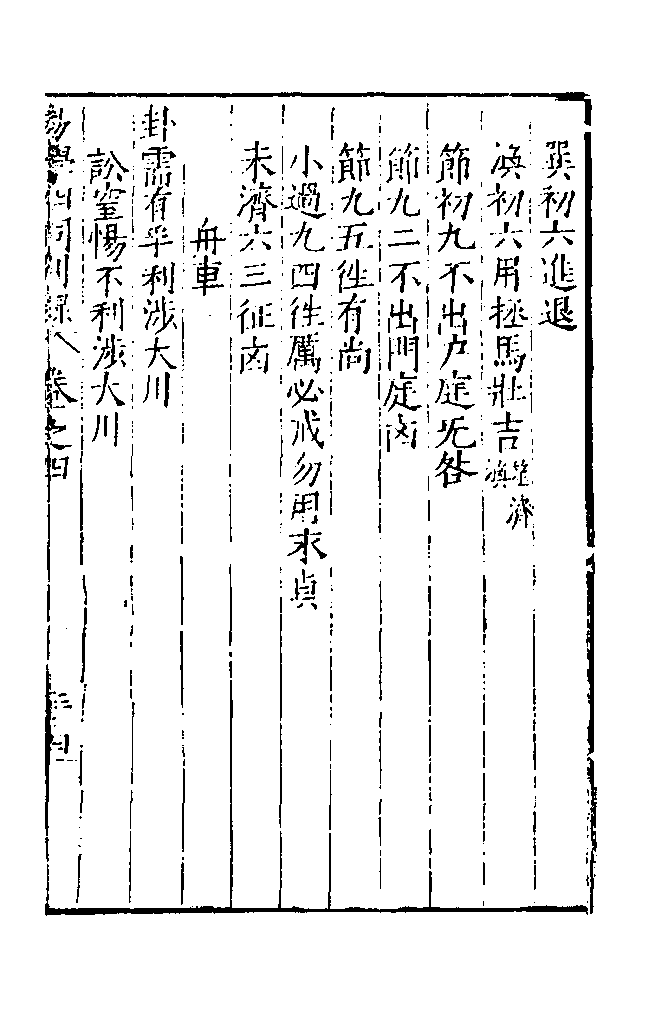 巽初六進退
渙初六用拯馬壯吉
節初九不出户庭无咎
節九二不出門庭凶
節九五徃有尚
小過九四徃厲必戒勿用永貞
未濟六三征凶
舟車
卦需有孚利涉大川
訟窒惕不利涉大川
易學 卷之四